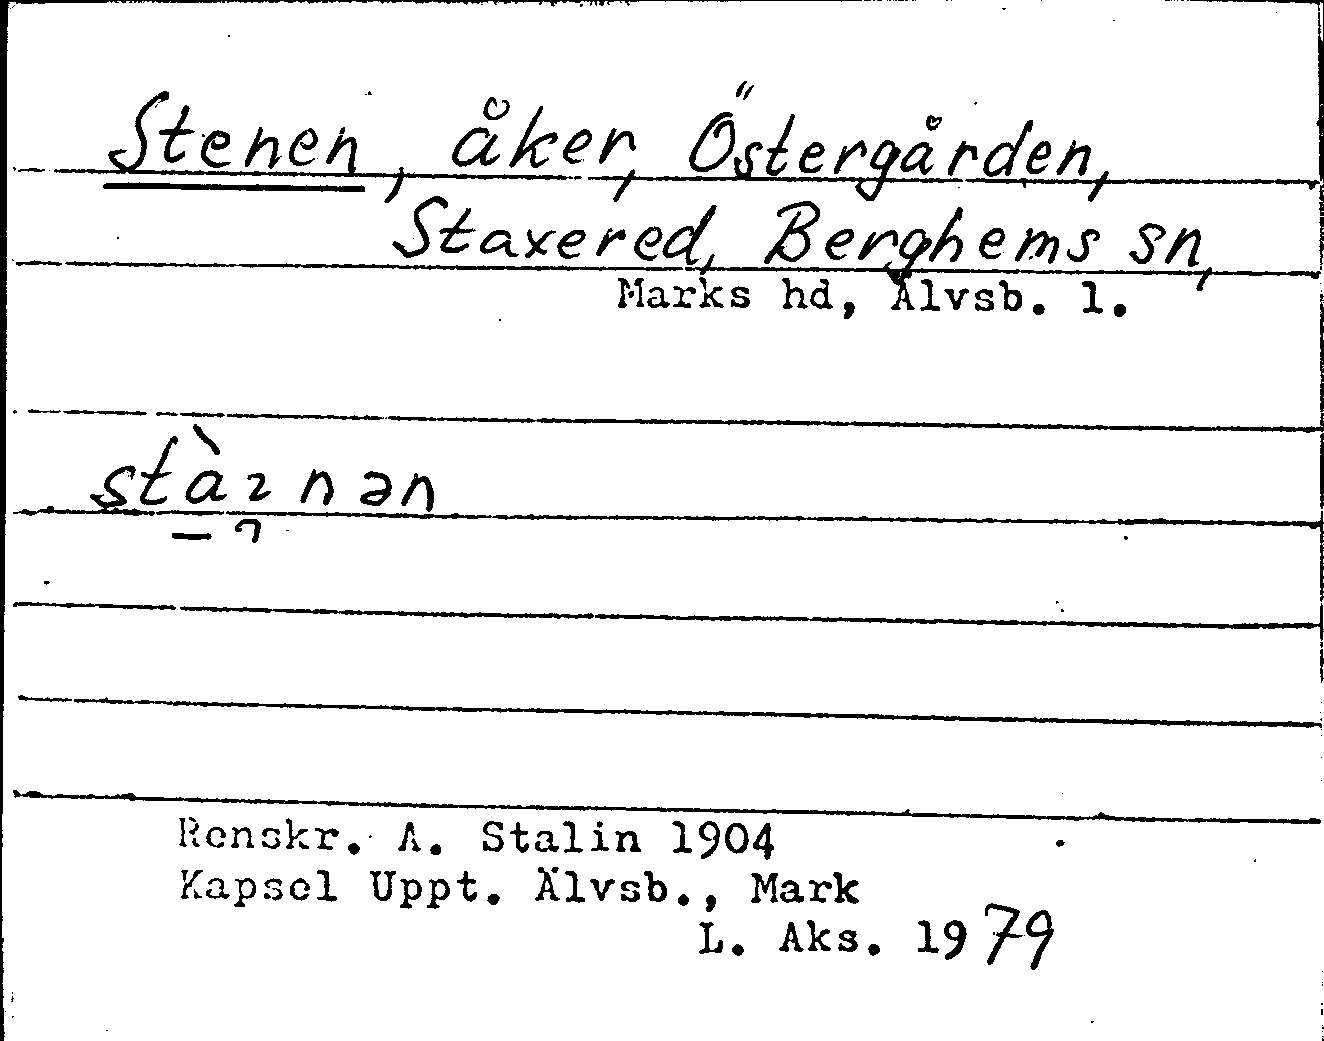 Stenen, åker, Östergården,
Staxered, Berghems sn,
Marks hd, Älvsb. l.
stàꝛnən
Renskr. A. Stalin 1904
Kapsel Uppt. Älvsb., Mark
L. Aks. 1979